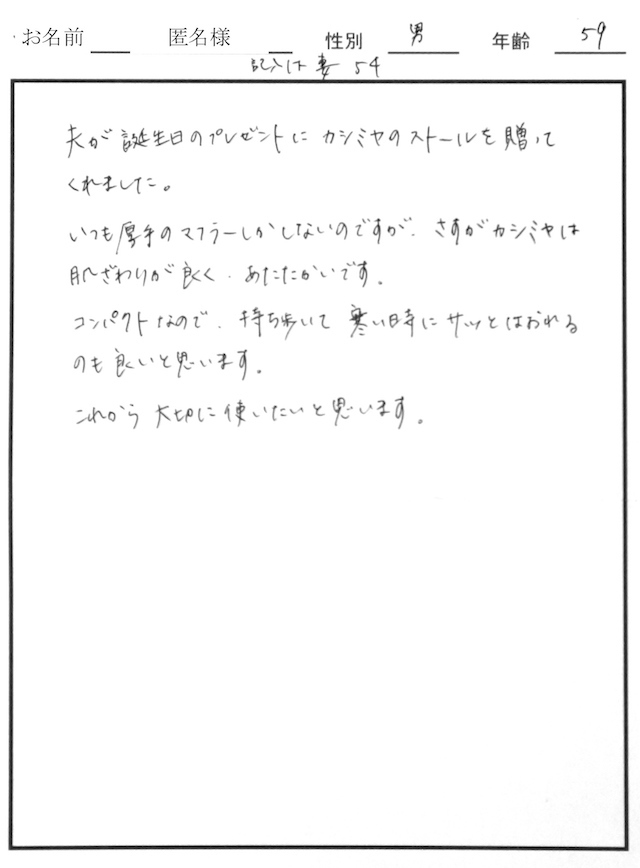 お名前 匿名様 性別 男 年齢 59
記入は 妻 54
夫が誕生日のプレゼントにカシミヤのストールを贈って
くれました。
いつも厚手のマフラーしかしないのですが、さすがカシミヤは
肌ざわりが良く、あたたかいです。
コンパクトなので、持ち歩いて寒い時にサッとはおれる
のも良いと思います。
これから大切に使いたいと思います。